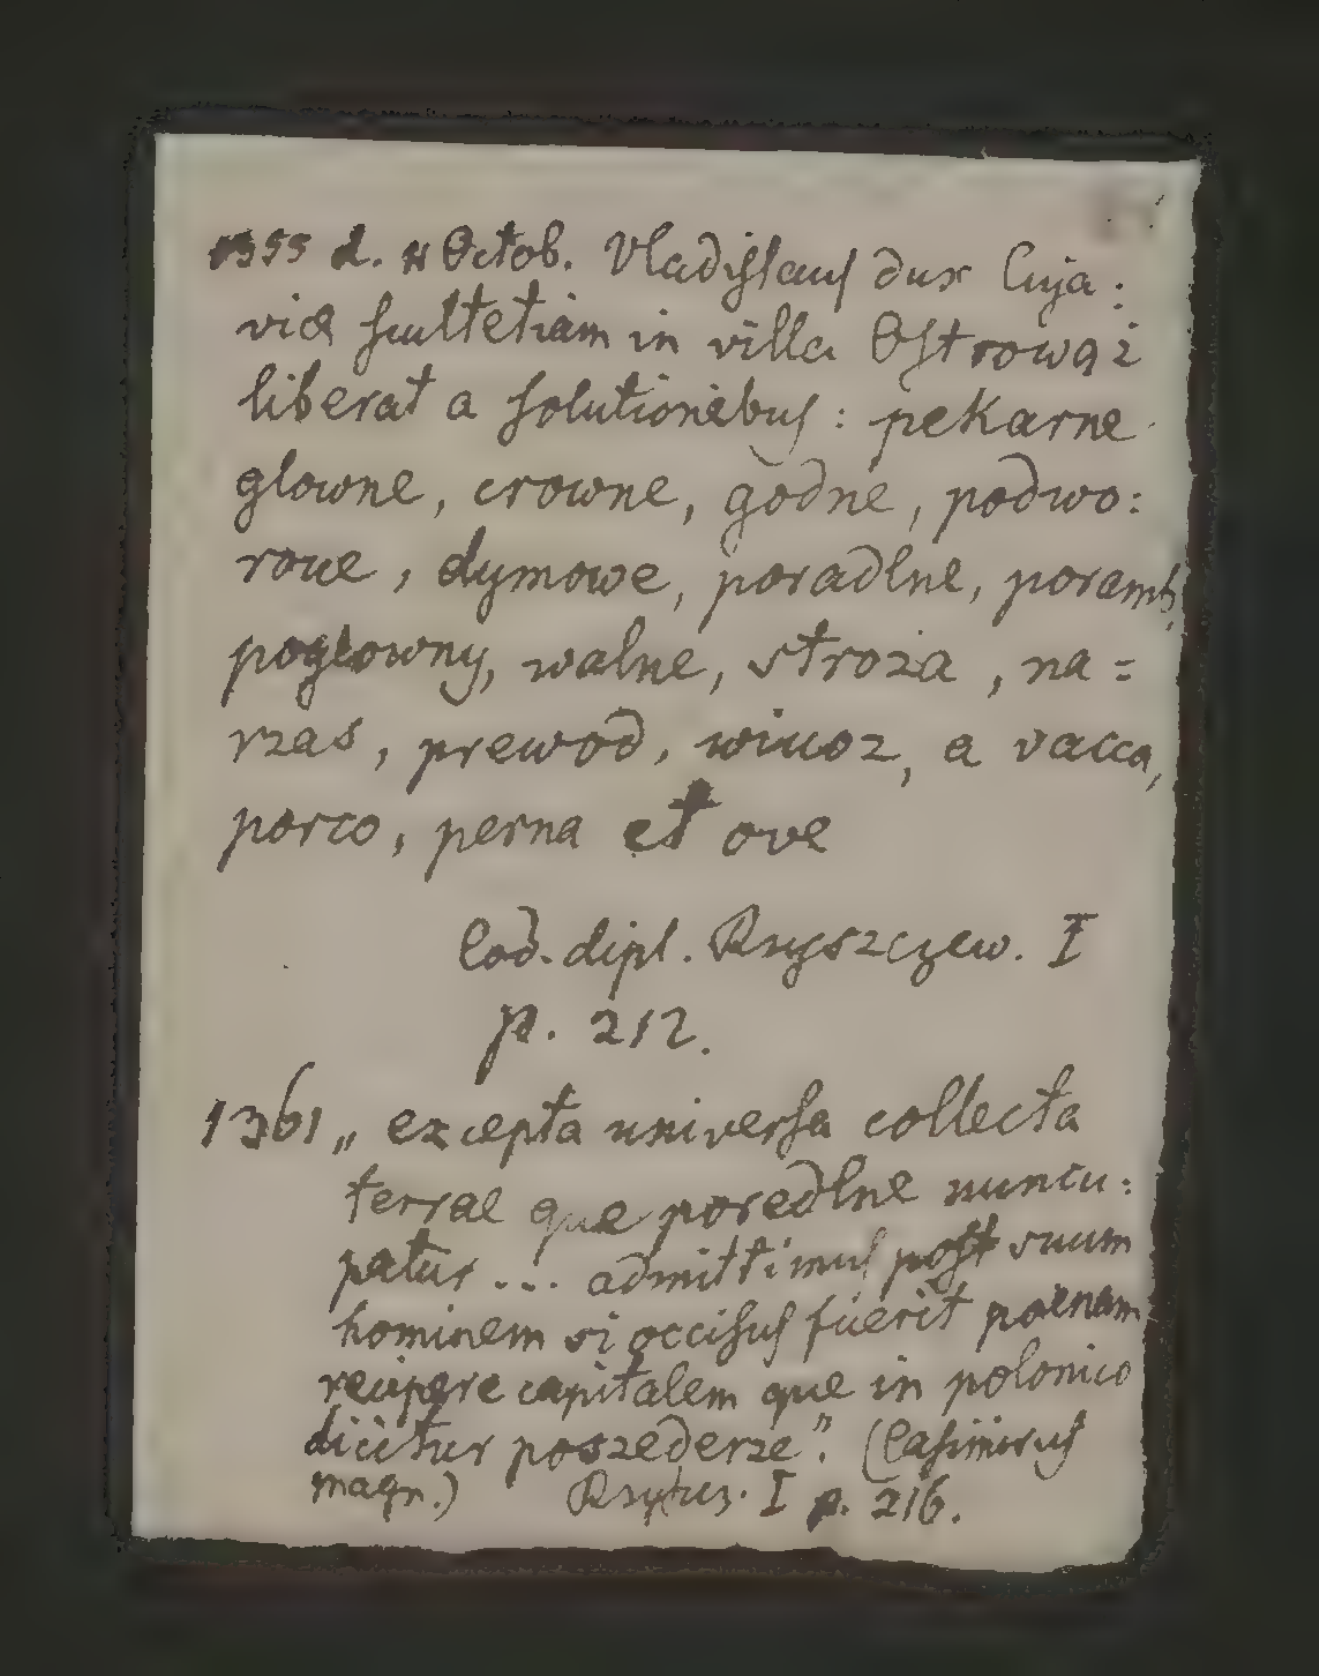 1355 d. 11 Octob. Vladislaus dux Cuja:
viæ scultetiam in villa Ostrowąż
liberat a solutionibus: pekarne
glowne, crowne, godne, podwo:
rowe, dymowe, poradlne, poramb,
poglowny, walne, stroża, na=
rzas, prewod, wiwoz, a vacca,
porco, perna et ove
Cod. dipl. Ryszczew. I
p. 212.
1361 „excepta universa collecta
terrae que poredlne nuncu:
patur ... admittimus post suum
hominem si occisus fuerit poenam
recipere capitalem que in polonico
dicitur poszederze". (Casimirus
magn.) I p. 216.